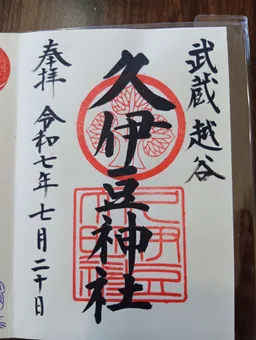 武蔵越谷
久伊豆神社
奉拝 令和七年七月二十日